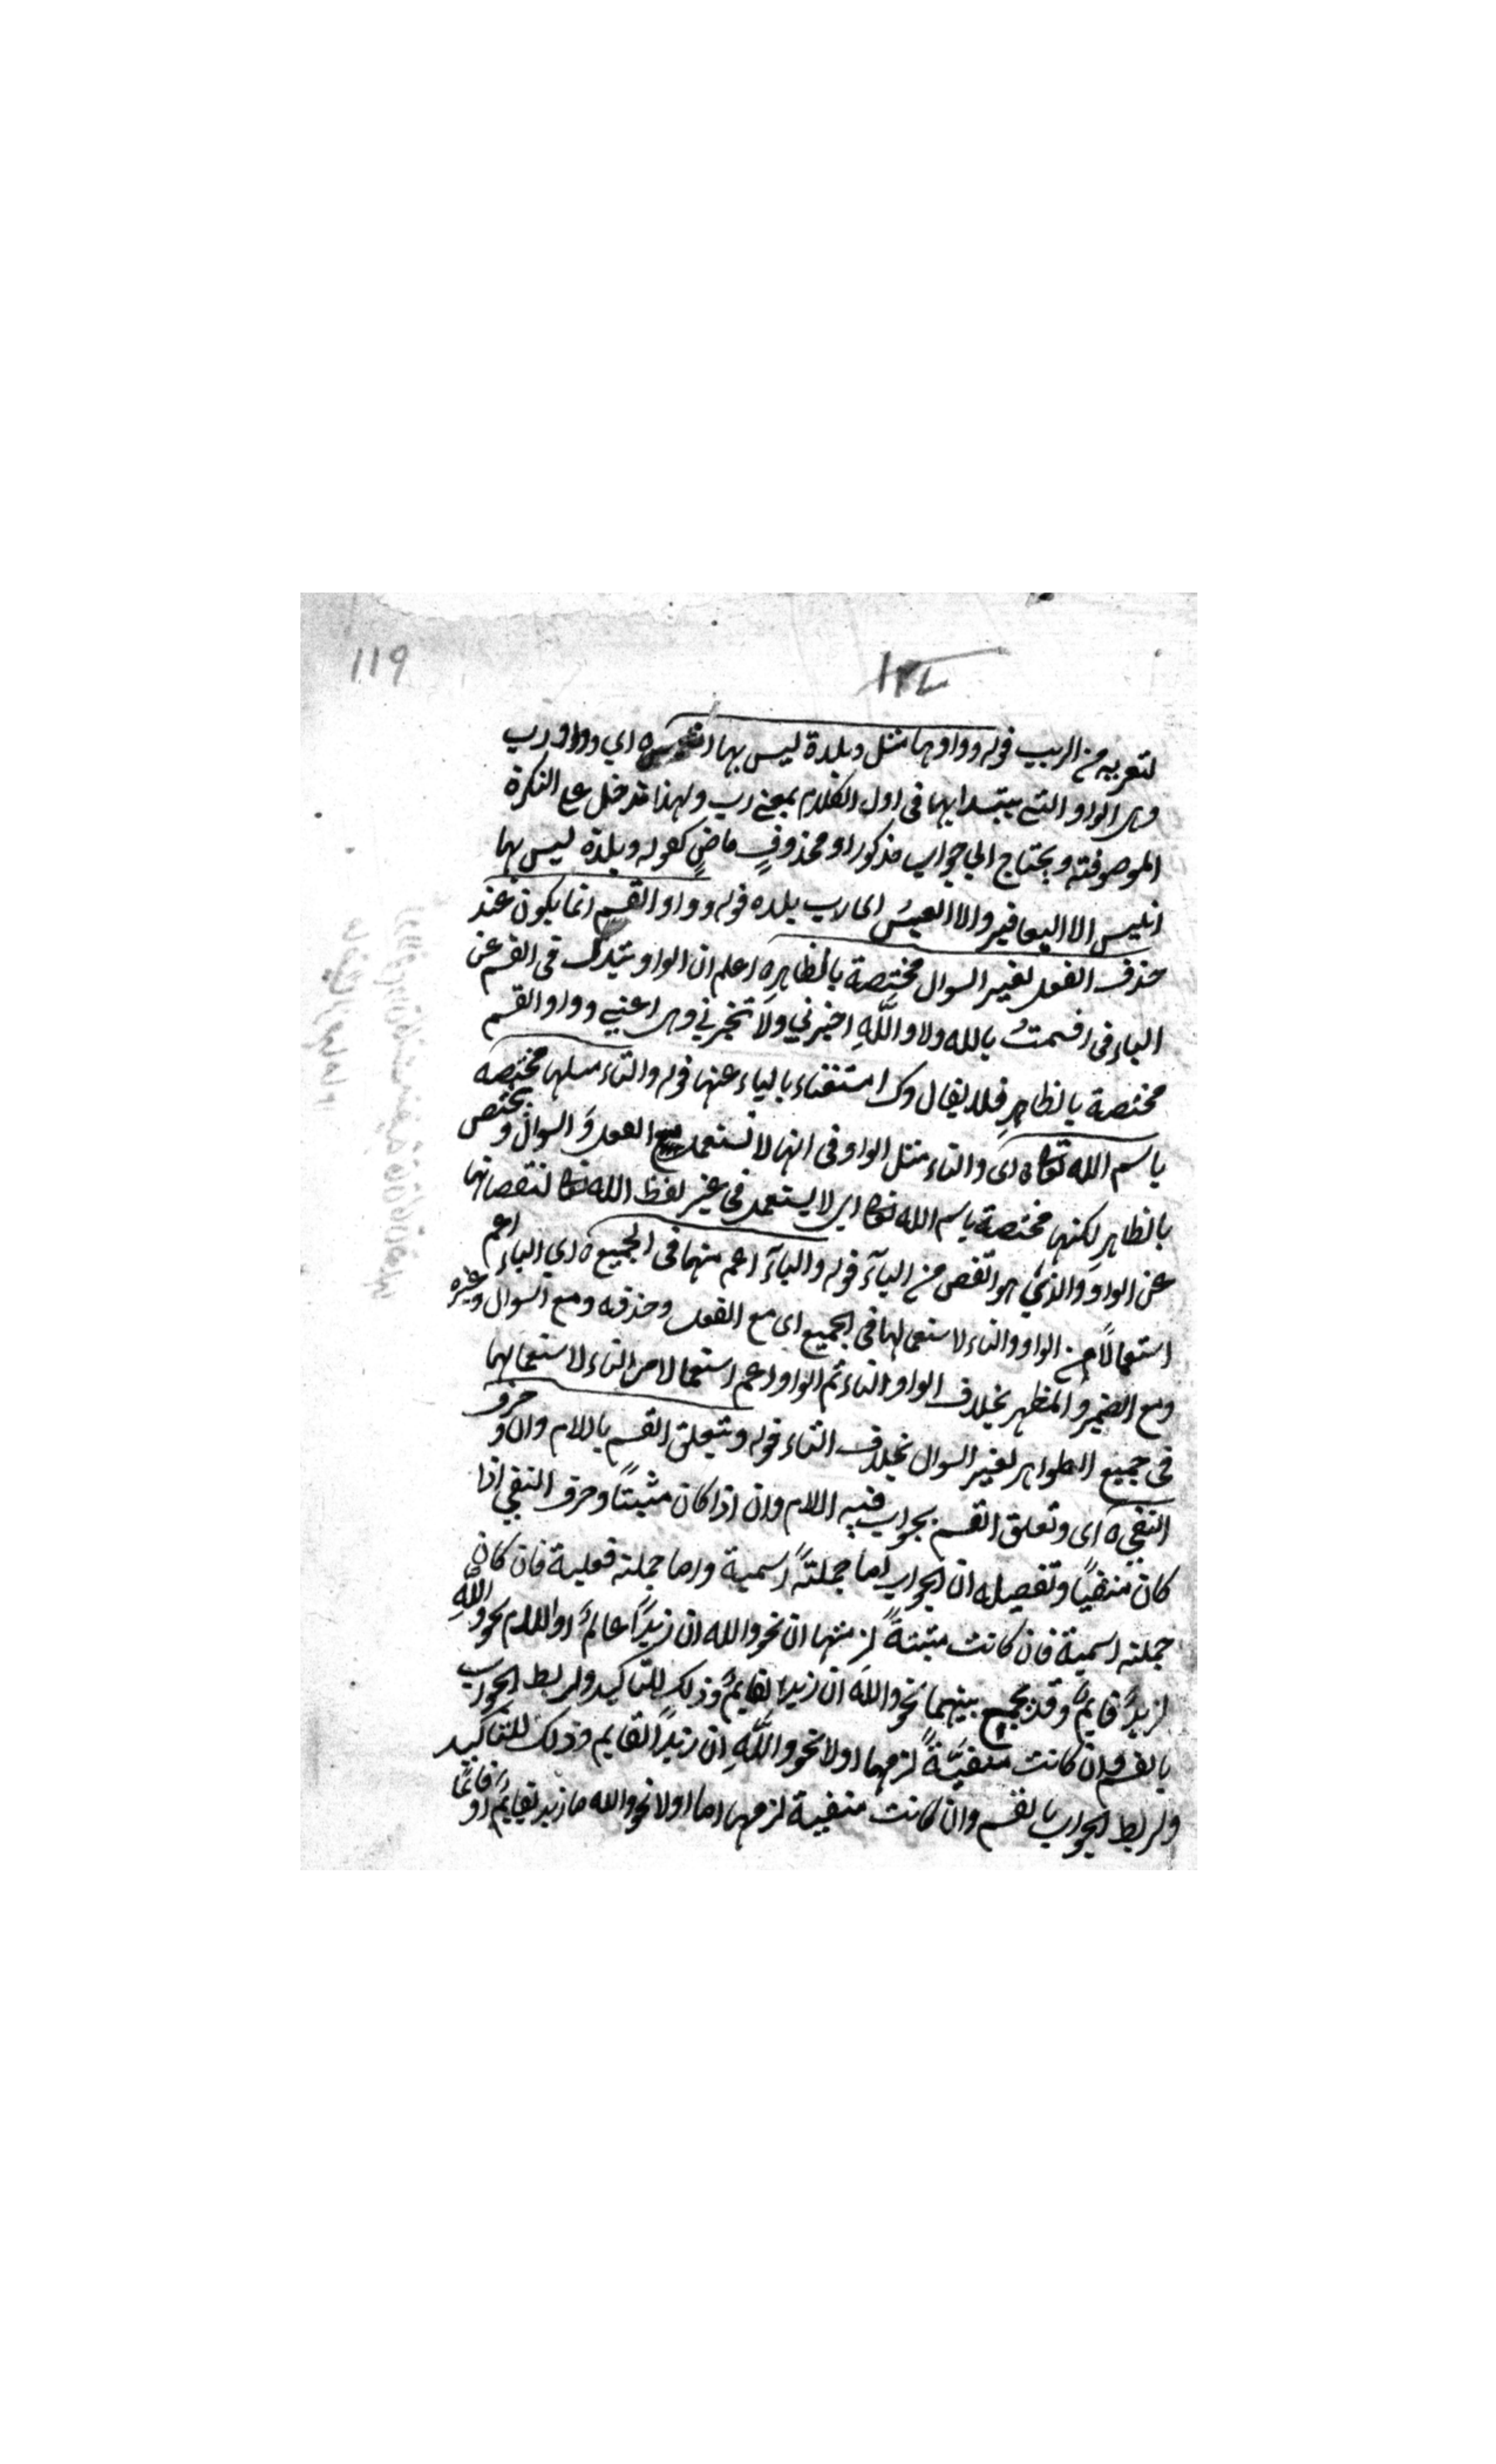 119
لتعريه من الريب قوله وواوها مثل وبلدة ليس بها انيس ه اي وواو رب
وهي الواو التي يبتدا بها في اول الكلام بمعنى رب ولهذا تدخل على النكرة
الموصوفته ويحتاج الى جواب مذكور او محذوفٍ ماضٍ كقوله وبلدة ليس بها
انيس الا اليعافير والا العيسُ اي رب بلده قوله وواو القسم انما يكون عند
حذف الفعل لغير السوال مختصة بالظاهرِ ه اعلم ان الواو تبدل في القسم عن
الباء في اقسمتُ بالله ولا واللهِ اخبرني ولا تخبرني وهي اعني وواو القسم
مختصة بالظاهرِ فلا يقال وك استغناء بالباء عنها قوله والتاء مثلها مختصه
باسم الله تعالى ه اى والتاء مثل الواو في انها لا تستعمل مع الفعل وَ السوال و يختص
بالظاهرِ لكنها مختصة باسم الله تعالى اى لا يستعمل في غير لفظ الله تعالى لنقصانها
عن الواو والذي هو انقص من الباَء قوله والباَء اعم منهما في الجميع ه اي الباء اعم
استعمالًا من الواو والتاء لاستعمالها في الجميع اى مع الفعل وحذفه ومع السوال وغيره
ومع الضمير والمظهر بخلاف الواو والتاء ثم الواو اعم استعمالا من التاء لاستعمالها
في جميع الظواهر لغير السوال بخلاف التاء قوله ويتعلق القسم باللام وان و حرف
النفي ه اى وتعلق القسم بجواب فيه اللام وان اذا كان مثبتًا وحرف النفي اذا
كان منفيًا وتفصيله ان الجواب اما جملتهً اسمية واما جملته فعلية فان كان
جملته اسمية فان كانت مثبتةً لزمتها ان نحو والله ان زيدًا عالمٌ او اللام نحو واللهِ
لزيدٌ قايمٌ وقد يجمع بينهما نحو واللهِ ان زيدا لقايمٌ وذلك للتاكيد ولربط الجواب
بالقسم وان كانت منفيّةً لزمها او لا نحو واللهِ ان زيدًا لقايم وذلك للتاكيد
ولربط الجواب بالقسم وان كانت منفية لزمها اما او لا نحو والله ما زيد بقايمٍ او قائمًا